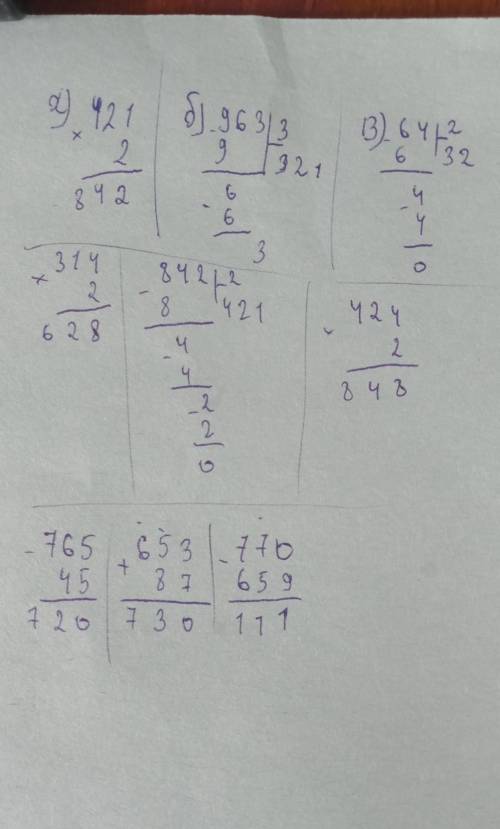 а) × 421
2
842
б) - 963 | 3
9 321
6
- 6
3
в) - 64 | 2
6 32
- 4
4
0
× 314
2
628
- 842 | 2
8 421
- 4
4
- 2
2
0
× 424
2
848
- 765
45
720
+ 653
87
730
- 770
659
111